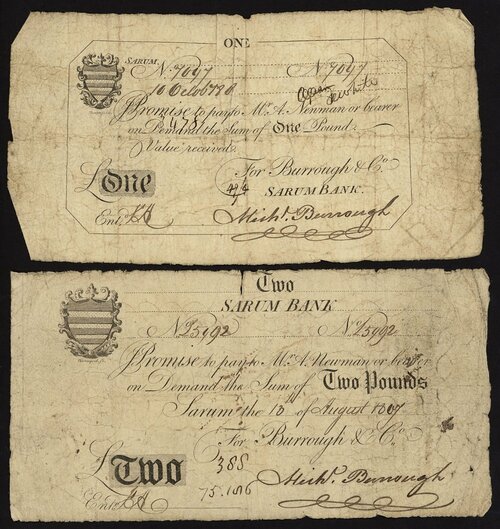 ONE
SARUM. No. 7097 No. 7097
I Promise to pay to Mr. A. Newman or bearer
on Demand the Sum of One Pound.
Value received.
For Burrough & Co.
£One
SARUM BANK.
Entd. Michl. Burrough
Two
SARUM BANK
No. £5992 No. £5992
I Promise to pay to Mr. A. Newman or bearer
on Demand the Sum of Two Pounds
Sarum the 10 of August 1807
For Burrough & Co.
£Two
388
Entd. Michl. Burrough
75.186